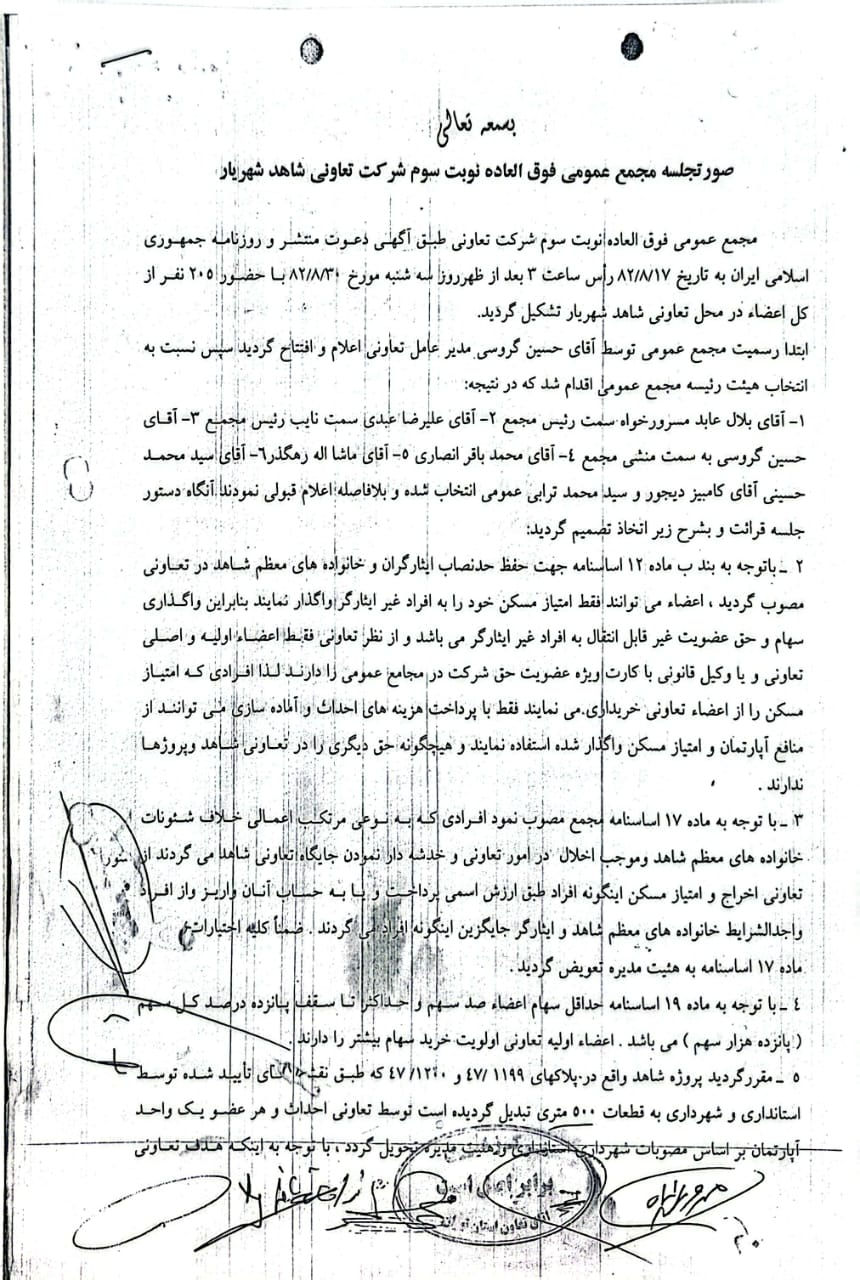 بسمه تعالی
صورتجلسه مجمع عمومی فوق العاده نوبت سوم شرکت تعاونی شاهد شهریار
مجمع عمومی فوق العاده نوبت سوم شرکت تعاونی طبق آگهی دعوت منتشر و روزنامه جمهوری
اسلامی ایران به تاریخ ۸۲/۸/۱۷ رأس ساعت ۳ بعد از ظهرروز سه شنبه مورخ ۸۲/۸/۳۰ با حضور ۲۰۵ نفر از
کل اعضاء در محل تعاونی شاهد شهریار تشکیل گردید.
ابتدا رسمیت مجمع عمومی توسط آقای حسین گروسی مدیر عامل تعاونی اعلام و افتتاح گردید سپس نسبت به
انتخاب هیئت رئیسه مجمع عمومی اقدام شد که در نتیجه:
۱- آقای بلال عابد مسرورخواه سمت رئیس مجمع ۲- آقای علیرضا عبدی سمت نایب رئیس مجمع ۳- آقای
حسین گروسی به سمت منشی مجمع ۴- آقای محمد باقر انصاری ۵- آقای ماشا اله رهگذر۶- آقای سید محمد
حسینی آقای کامبیز دیجور و سید محمد ترابی عمومی انتخاب شده و بلافاصله اعلام قبولی نمودند آنگاه دستور
جلسه قرائت و بشرح زیر اتخاذ تصمیم گردید:
۲ ـ باتوجه به بند ب ماده ۱۲ اساسنامه جهت حفظ حدنصاب ایثارگران و خانواده های معظم شاهد در تعاونی
مصوب گردید ، اعضاء می توانند فقط امتیاز مسکن خود را به افراد غیر ایثارگر واگذار نمایند بنابراین واگذاری
سهام و حق عضویت غیر قابل انتقال به افراد غیر ایثارگر می باشد و از نظر تعاونی فقط اعضاء اولیه و اصلی
تعاونی و یا وکیل قانونی با کارت ویژه عضویت حق شرکت در مجامع عمومی را دارند لذا افرادی که امتیاز
مسکن را از اعضاء تعاونی خریداری می نمایند فقط با پرداخت هزینه های احداث و آماده سازی می توانند از
منافع آپارتمان و امتیاز مسکن واگذار شده استفاده نمایند و هیچگونه حق دیگری را در تعاونی شاهد وپروژها
ندارند .
۳ ـ با توجه به ماده ۱۷ اساسنامه مجمع مصوب نمود افرادی که به نوعی مرتکب اعمالی خلاف شئونات
خانواده های معظم شاهد وموجب اخلال در امور تعاونی و خدشه دار نمودن جایگاه تعاونی شاهد می گردند از
تعاونی اخراج و امتیاز مسکن اینگونه افراد طبق ارزش اسمی پرداخت و یا به حساب آنان واریز واز افراد
واجدالشرایط خانواده های معظم شاهد و ایثارگر جایگزین اینگونه افراد می گردند . ضمناً کلیه اختیارات
ماده ۱۷ اساسنامه به هئیت مدیره تعویض گردید .
۴ ـ با توجه به ماده ۱۹ اساسنامه حداقل سهام اعضاء صد سهم و حداکثر تا سقف پانزده درصد کل سهم
( پانزده هزار سهم ) می باشد . اعضاء اولیه تعاونی اولویت خرید سهام بیشتر را دارند .
۵ ـ مقررگردید پروژه شاهد واقع در پلاکهای ۴۷/ ۱۱۹۹ و ۴۷/۱۲۰۰ که طبق نقشه های تأیید شده توسط
استانداری و شهرداری به قطعات ۵۰۰ متری تبدیل گردیده است توسط تعاونی احداث و هر عضو یک واحد
آپارتمان بر اساس مصوبات شهرداری استانداری وهئیت مدیره تحویل گردد ، با توجه به اینکه هدف تعاونی
برابر اصل است